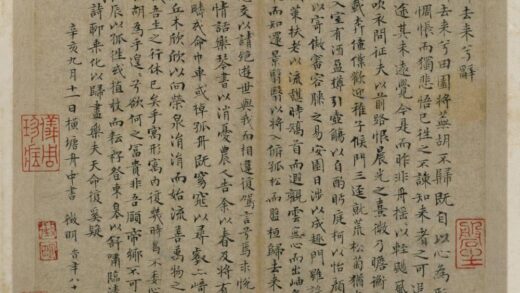 去來兮辭
去來兮田園將蕪胡不歸既自以心為形
惆悵而獨悲悟已往之不諫知來者之可追
途其未遠覺今是而昨非舟搖以輕颺風
吹衣問征夫以前路恨晨光之熹微乃瞻衡
載奔僮僕歡迎稚子候門三逕就荒松菊猶
入室有酒盈樽引壺觴以自酌眄庭柯以怡顏
以寄傲審容膝之易安園日涉以成趣門雖
策扶老以流憩時矯首而遐觀雲無心而出岫
而知還景翳翳以將入撫孤松而盤桓歸去來
息交以請絕遊世與我而相違復駕言兮焉求悅
情話樂琴書以消憂農人告余以春及將有
時或命巾車或棹孤舟既窈窕以尋壑亦崎
丘木欣欣以向榮泉涓涓而始流善萬物之
吾生之行休已矣乎寓形宇內復幾時曷不委心
胡為乎遑遑兮欲何之富貴非吾願帝鄉不可
辰以孤往或植杖而耘耔登東皋以舒嘯臨清
詩聊乘化以歸盡樂夫天命復奚疑
辛亥九月十一日橫塘舟中書 徵明 年八十
儀周珍藏